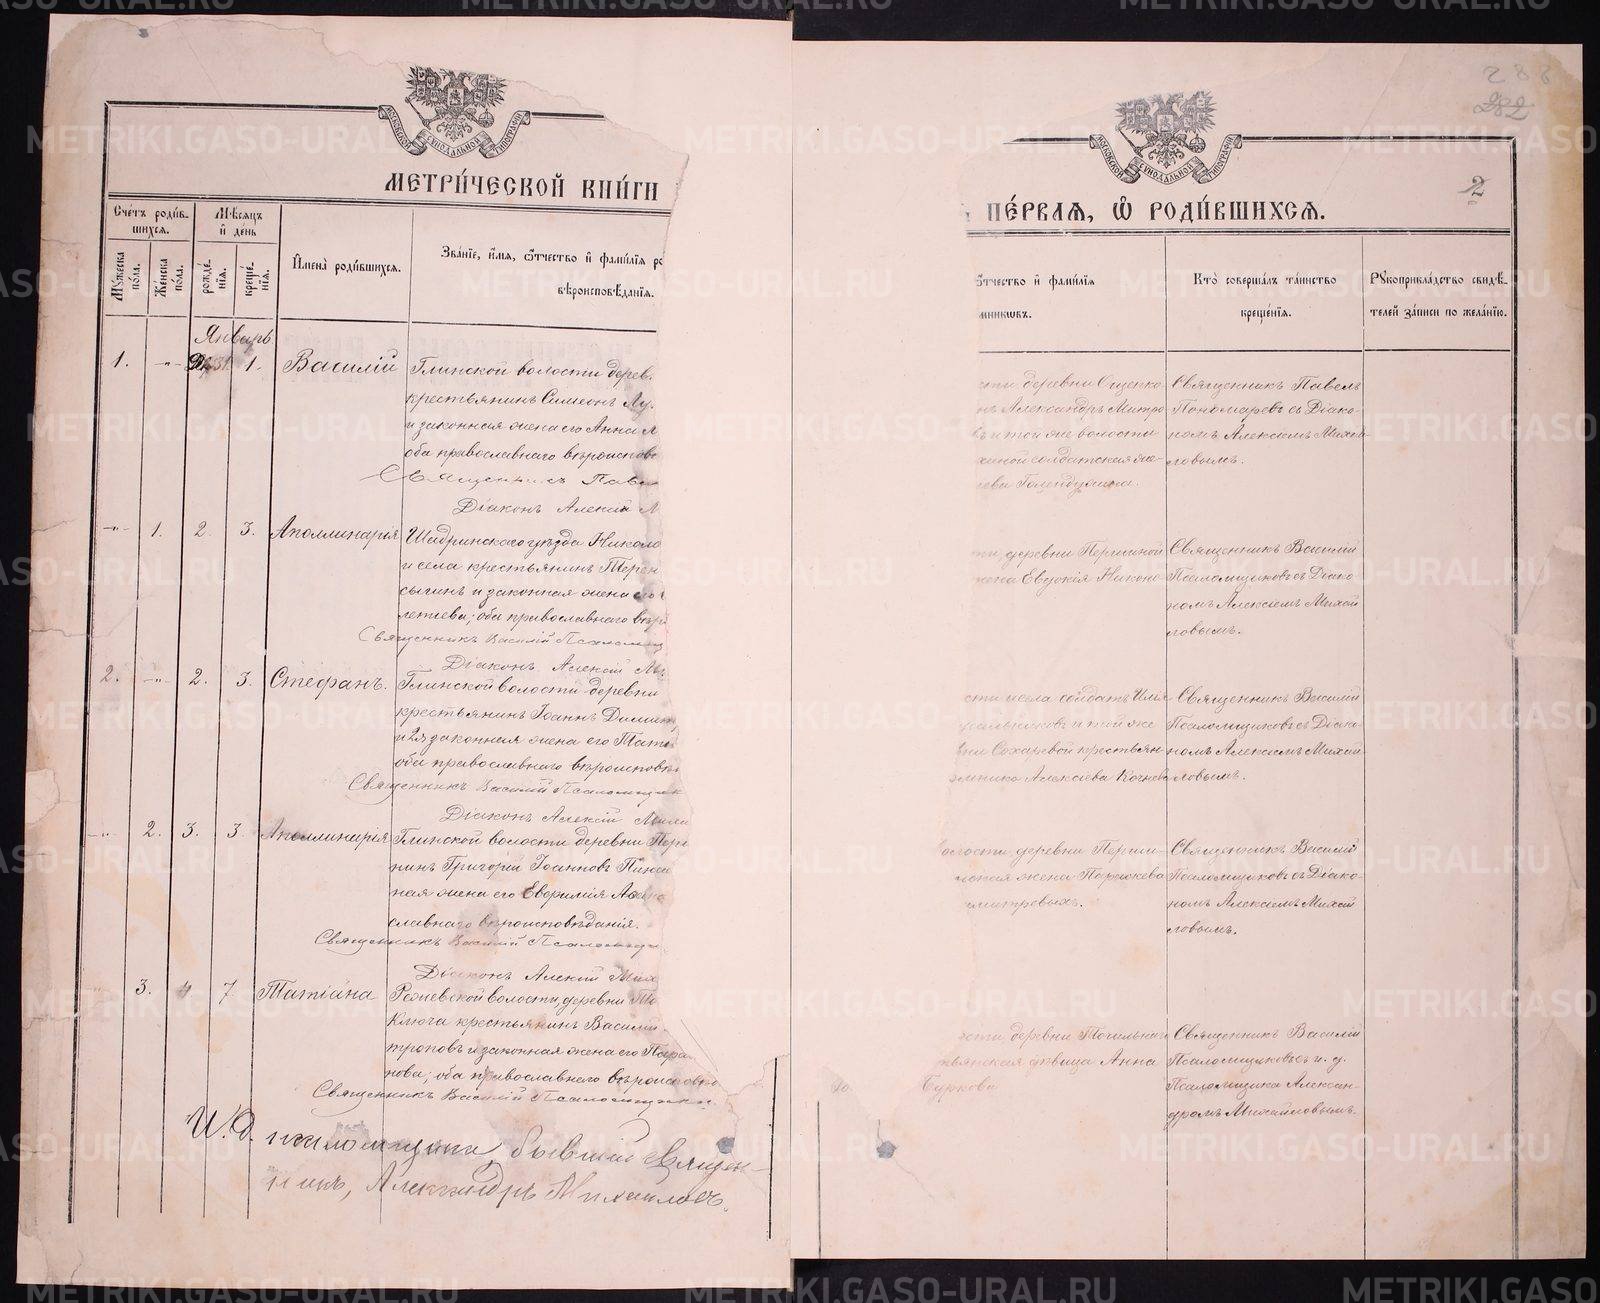 МЕТРИ́ЧЕСКОЙ КНИ́ГИ
Сче́тъ роди́в-
шихся.
Мѣсяцъ
и҆ де́нь
Мꙋжеска по́ла.
Же́нска по́ла.
рожде́-
нїѧ.
креще́-
нїѧ.
И҆мена̀ роди́вшихсѧ.
Зва́нїе, и҆́мѧ, ѻ҆́тчество и҆ фами́лїѧ ро
вѣроисповѣ́данїѧ.
Январь
1. -"- 31. 1. Василій
Глинской волости дерев.
крестьянинъ Симеонъ Лу.
и законная жена его Анна
оба православнаго вѣроиспове
Священникъ Павел
Діаконъ Алексій М
-"- 1. 2. 3. Аполлинарія
Шадринскаго уѣзда Николо
и села крестьянинъ Терен
сынинъ и законная жена его
летіева; оба православнаго вѣр
Священникъ Василій Псаломщ
Діаконъ Алексій Ми
2. -"- 2. 3. Стефанъ.
Глинской волости деревни
крестьянинъ Іоаннъ Димит
и 2я законная жена его Тать
оба православнаго вѣроисповѣ
Священникъ Василій Псаломщик
Діаконъ Алексій Миха
-"- 2. 3. 3. Аполлинарія
Глинской волости деревни Перш
нинъ Григорій Іоанновъ Пинаи
ная жена его Евфимія
славнаго вѣроисповѣданія.
Священникъ Василій Псаломщик
Діаконъ Алексій Миха
3. 4 7 Татіана
Режевской волости, деревни То
Ключа крестьянинъ Василій
троповъ и законная жена его Пара
нова; оба православнаго вѣроисповѣ
Священникъ Василій Псаломщиковъ.
И. д. псаломщика, бывшій священ-
никъ, Александръ Михайловъ.
288
282
2
ПЕ́РВАѦ, Ѽ РОДИ́ВШИХСѦ.
ѻ҆́тчество и҆ фами́лїѧ
мникѡвъ.
Кто̀ соверша́лъ та́инство
креще́нїѧ.
Рꙋкоприкла́дство свидѣ́-
телей за́писи по жела́нїю.
сти деревни Ощепко
нъ Александръ Митро
въ и той же волости
хиной солдатская же-
еева Голендухина.
Священникъ Павелъ
Пономаревъ съ Діако-
номъ Алексіемъ Михай
ловымъ.
ти, деревни Першиной
жена Евдокія Никоно
Священникъ Василій
Псаломщиковъ съ Діако-
номъ Алексіемъ Михай
ловымъ.
сти села солдатъ Илія
альниковъ и той же
вни Сохаревой крестьян
омника Алексѣева Кочнева
Священникъ Василій
Псаломщиковъ съ Діако-
номъ Алексіемъ Михай-
ловымъ.
волости, деревни Перши-
нская жена Параскева
митревыхъ.
Священникъ Василій
Псаломщиковъ съ Діако-
номъ Алексіемъ Михай
ловымъ.
ости деревни Точильна
тьянская дѣвица Анна
Буркова
Священникъ Василій
Псаломщиковъ съ и. д.
Псаломщика Алексан-
дромъ Михайловымъ.
METRIKI.GASO-URAL.RU